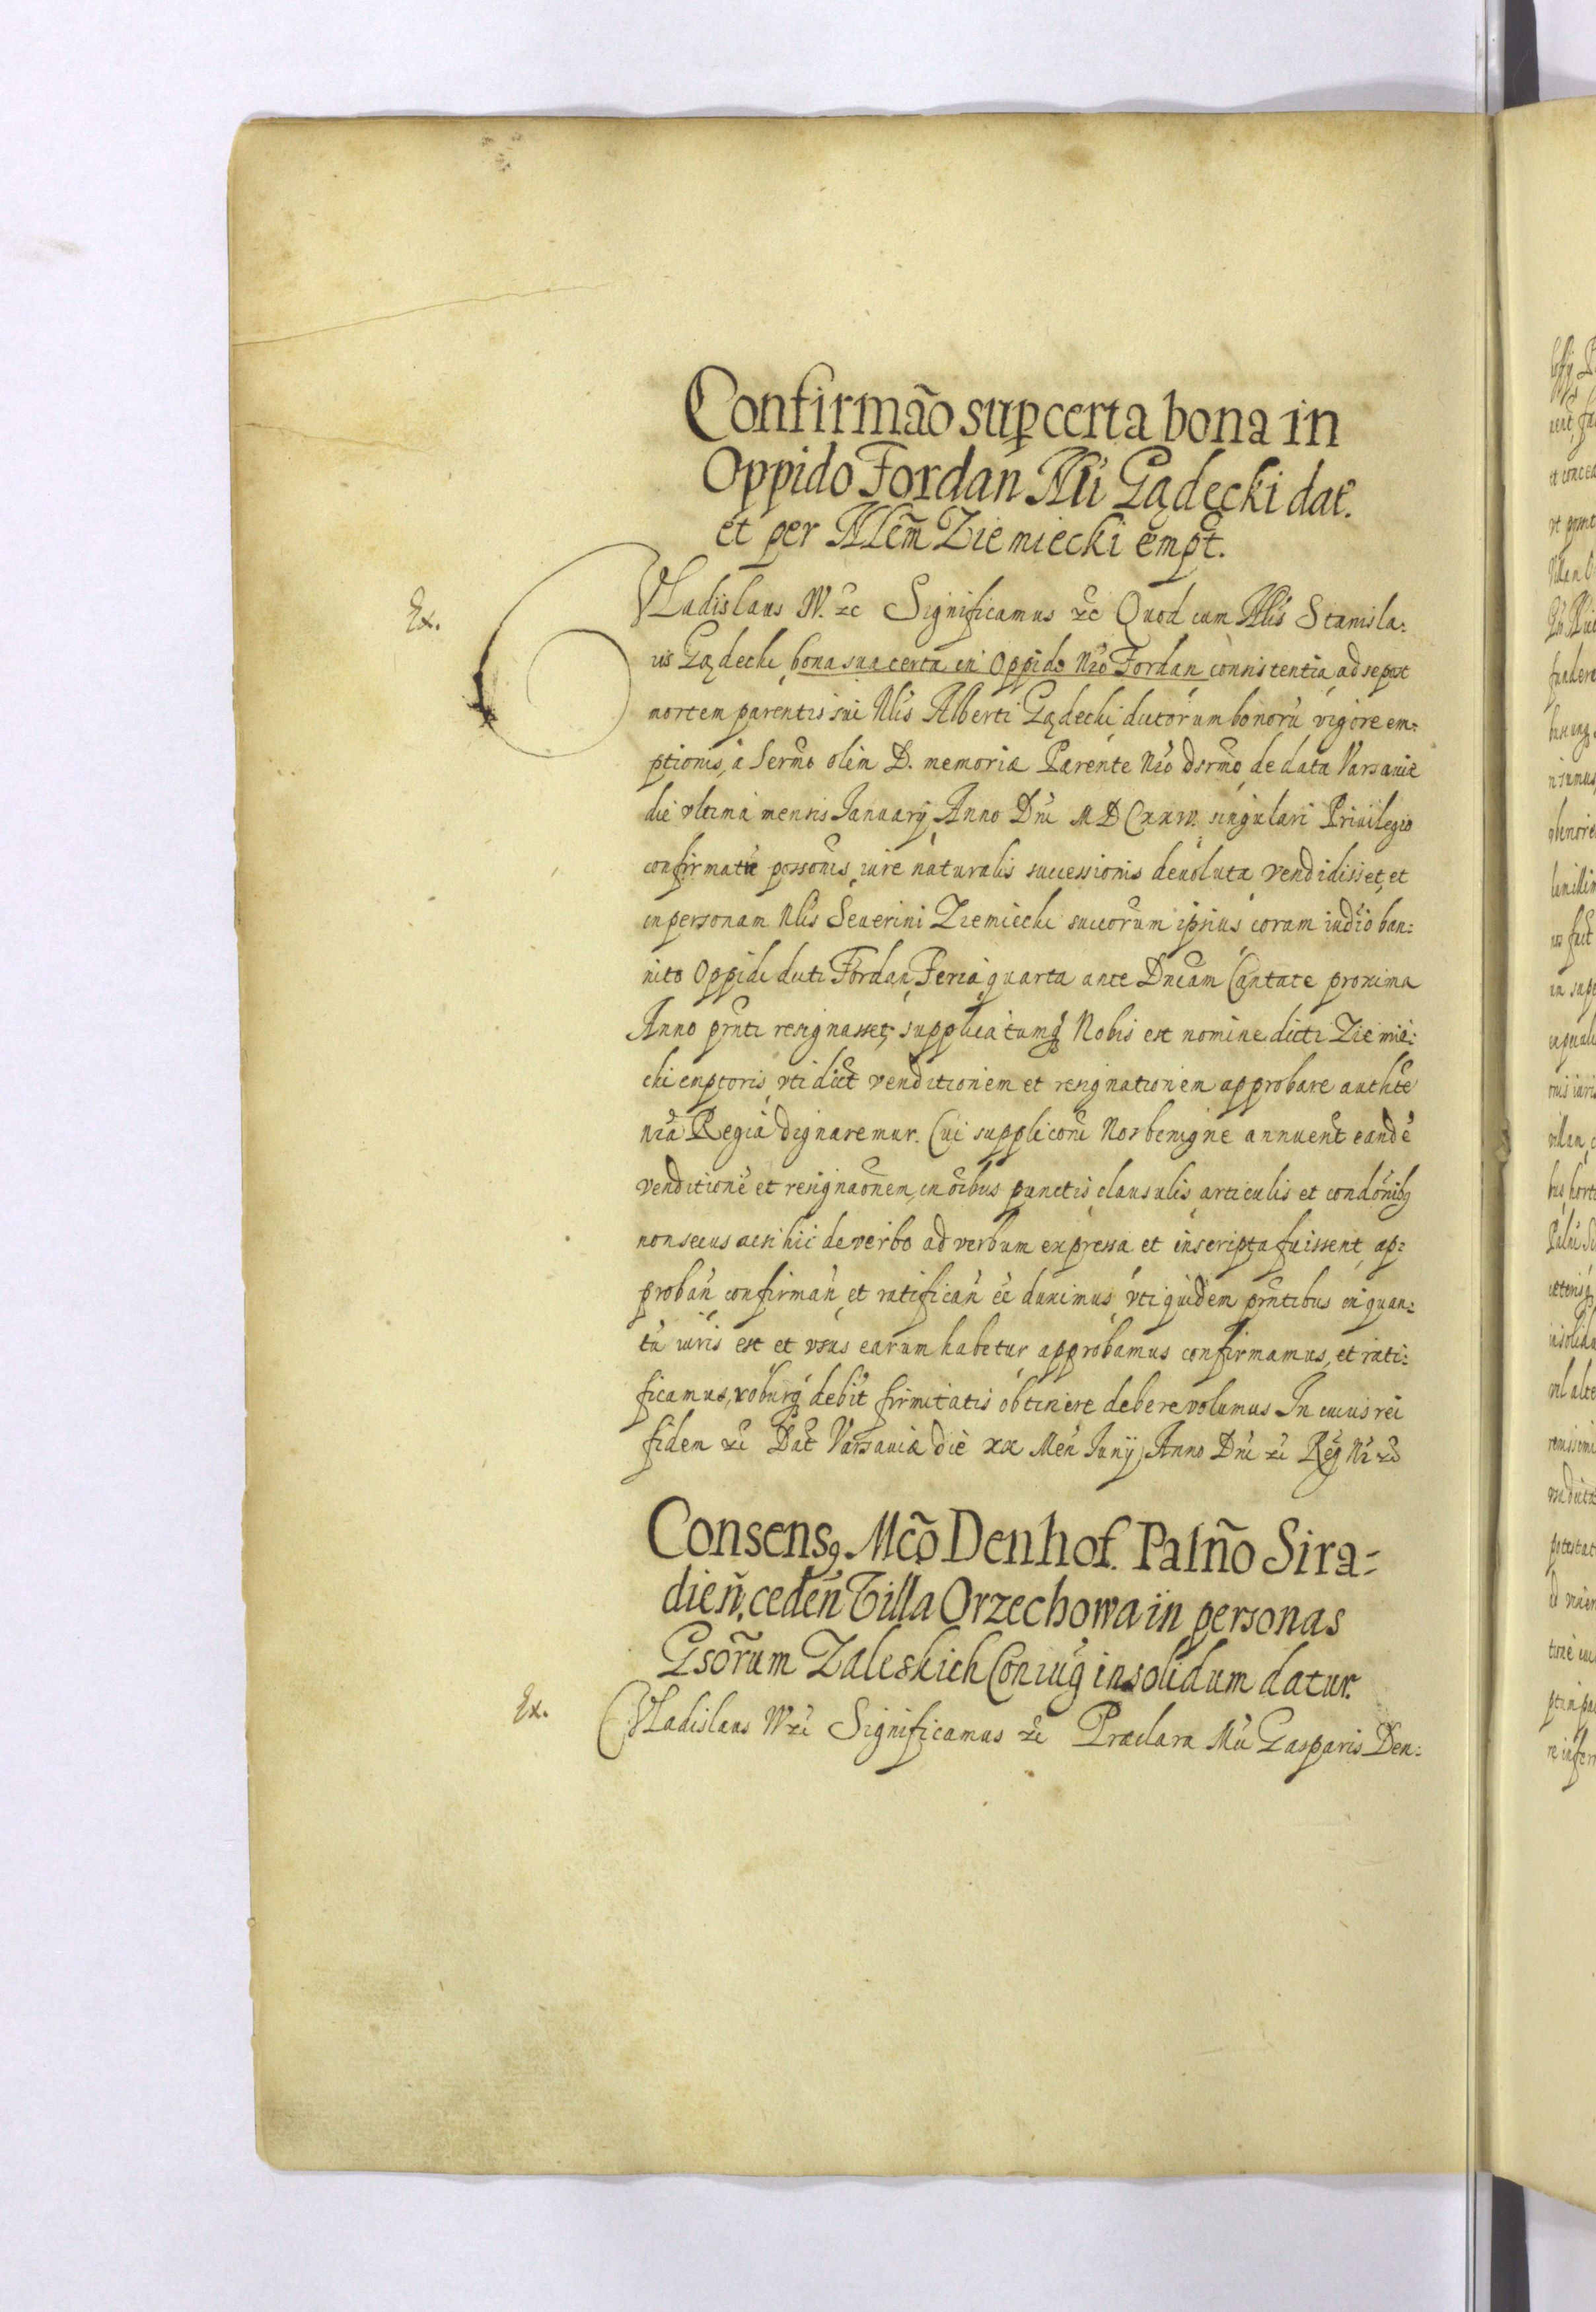 Confirmão sup certa bona in
Oppido Fordan Nli Gądecki dat.
et per Nlem̃ Ziemiecki empt.
Ex.
VLadislaus IV. &c Significamus &c Quod cum Nlis Stanisla:
us Gądecki, bona sua certa in Oppido Nrõ Fordan consistentia, ad se post
mortem parentis sui Nlis Alberti Gądecki, dictorum bonorũ vigore em:
ptionis, a Sermo olim D. memoriæ Parente Nrõ Dsrmo, de data Varsaviæ
die vltima mensis Ianuarij Anno Dni MDCxxiv. singulari Priuilegio
confirmatæ possonis, iure naturalis successionis deuoluta, vendidisset, et
in personam Nlis Seuerini Ziemiecki succorum ipsius, coram iudicio ban:
nito Oppidi dicti Fordan, Feria quarta ante Dnicam Cantate proxima
Anno prnti resignasset, supplicatumq; Nobis est nomine dicti Ziemie:
cki emptoris, vti dict venditionem et resignationem approbare authte
nra Regia dignaremur. Cui suppliconi Nos benigne annuent eandẽ
venditionẽ et resignaonem, in oibus punctis, clausulis, articulis et condonib9
non secus acsi hic de verbo ad verbum expressa et inscripta fuissent, ap:
proban̄ confirman̄ et ratifican̄ ee duximus, vti quidem prntibus in quan:
tũ iuris est et vsus earum habetur approbamus confirmamus, et rati:
ficamus, roburq; debit firmitatis obtinere debere volumus. In cuius rei
fidem &c Dat Varsauiæ die xx Men Iunij Anno Dni &c Reg Nr &c
Consens9 Mcõ Denhof. Palño Sira-
dieñ, cedeñ Villa Orzechowa in personas
Gsorum Zaleskich Coniug insolidum datur.
Ex.
VLadislaus IV &c Significamus &c Præclara Mci Gasparis Den: